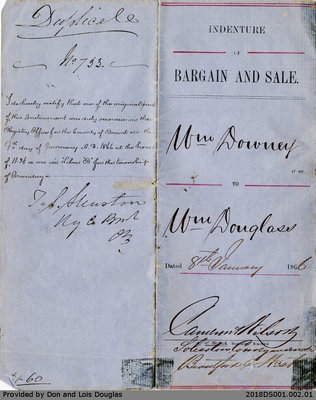 Duplicate
No 733.
I do hereby certify that one of the original parts
of this Instrument was duly recorded in the
Registry Office for the County of Brant on the
day of January A.D. 1866 at the hour
of 11.31 a m in Liber for the township
of Onondaga
Shenston
Reg Co Brant
$1-60
INDENTURE
OF
BARGAIN AND SALE.
Wm Downey
et ux
TO
Wm Douglass
Dated 8th January 1866
Cameron &
Solicitors Conveyancers
Brantford
Provided by Don and Lois Douglas
2018DS001.002.01